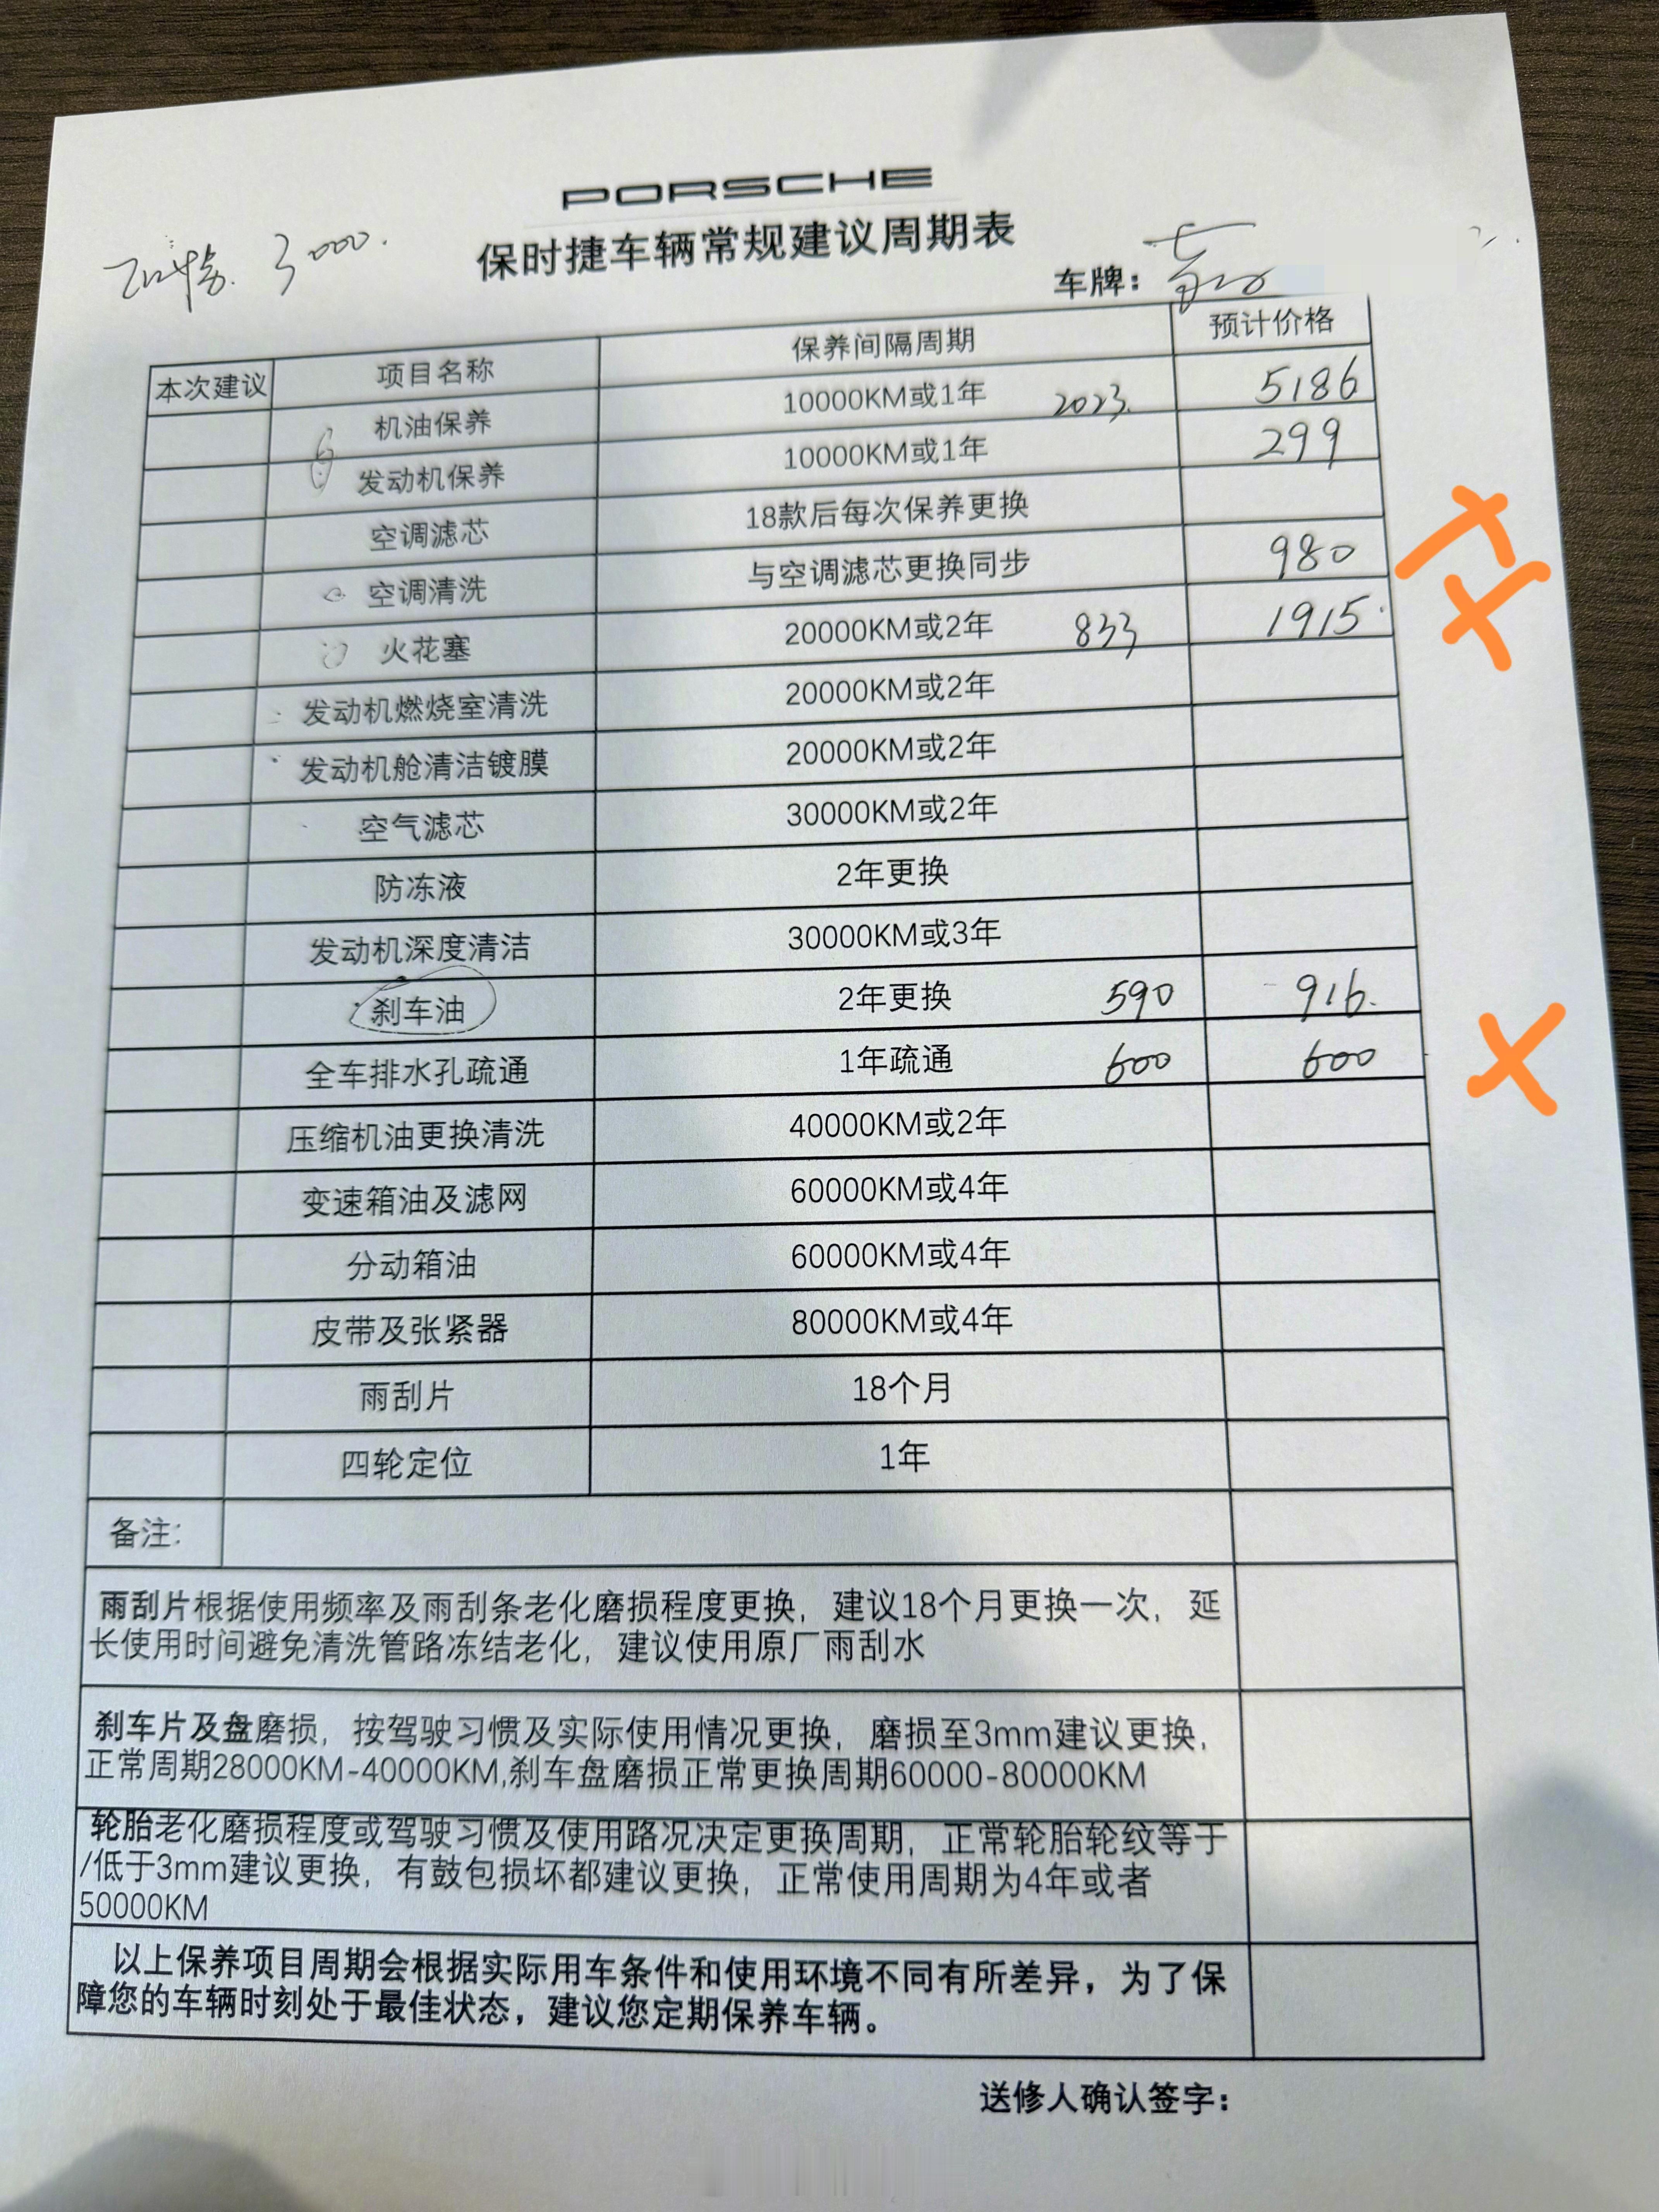 PORSCHE
保时捷车辆常规建议周期表
3000.
车牌：
本次建议 项目名称 保养间隔周期 预计价格
机油保养 10000KM或1年 2023. 5186
发动机保养 10000KM或1年 299
空调滤芯 18款后每次保养更换
空调清洗 与空调滤芯更换同步 980
火花塞 20000KM或2年 833 1915
发动机燃烧室清洗 20000KM或2年
发动机舱清洁镀膜 20000KM或2年
空气滤芯 30000KM或2年
防冻液 2年更换
发动机深度清洁 30000KM或3年
刹车油 2年更换 590 916.
全车排水孔疏通 1年疏通 600 600
压缩机油更换清洗 40000KM或2年
变速箱油及滤网 60000KM或4年
分动箱油 60000KM或4年
皮带及张紧器 80000KM或4年
雨刮片 18个月
四轮定位 1年
备注：
雨刮片根据使用频率及雨刮条老化磨损程度更换，建议18个月更换一次，延
长使用时间避免清洗管路冻结老化，建议使用原厂雨刮水
刹车片及盘磨损，按驾驶习惯及实际使用情况更换，磨损至3mm建议更换，
正常周期28000KM-40000KM,刹车盘磨损正常更换周期60000-80000KM
轮胎老化磨损程度或驾驶习惯及使用路况决定更换周期，正常轮胎轮纹等于
/低于3mm建议更换，有鼓包损坏都建议更换，正常使用周期为4年或者
50000KM
以上保养项目周期会根据实际用车条件和使用环境不同有所差异，为了保
障您的车辆时刻处于最佳状态，建议您定期保养车辆。
送修人确认签字：